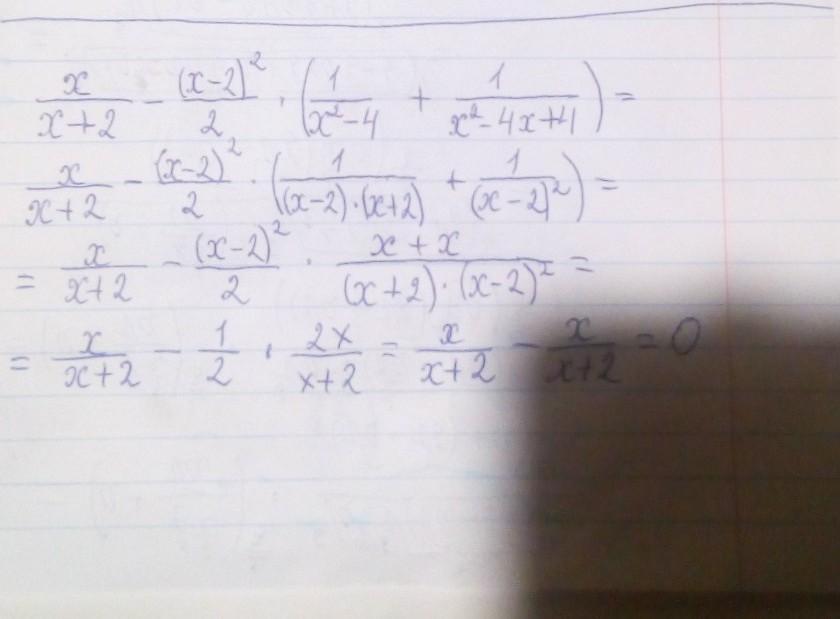 x/(x+2) − (x−2)²/2 · (1/(x²−4) + 1/(x²−4x+4)) =
x/(x+2) − (x−2)²/2 · (1/((x−2)·(x+2)) + 1/(x−2)²) =
= x/(x+2) − (x−2)²/2 · (x+x)/((x+2)·(x−2)²) =
= x/(x+2) − 1/2 · 2x/(x+2) = x/(x+2) − x/(x+2) = 0